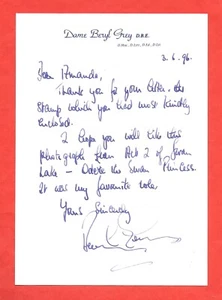 Dame Beryl Grey D.B.E.
3.6.96.
Dear Armando,
Thank you for your letter, the
stamp which you had most kindly
enclosed.
I hope you will like this
photograph from Act 2 of Swan
Lake – Odette the Swan Princess.
It was my favourite role
Yours Sincerely